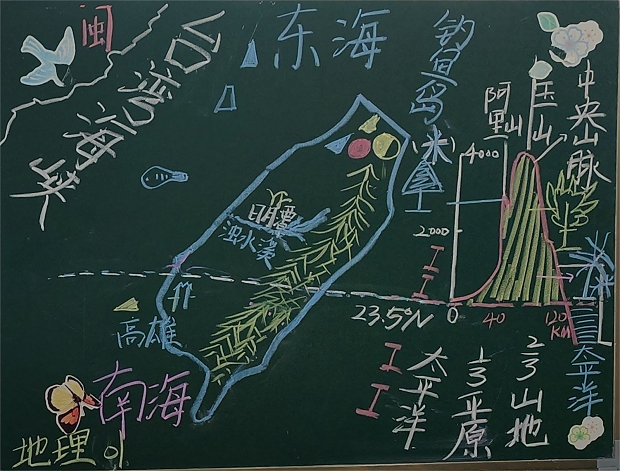 闽
台湾海峡
东海
钓鱼岛
阿里山
玉山
中央山脉
(米)
4000
2000
日月潭
浊水溪
23.5°N
0
40
120
KM
高雄
太平洋
太平洋
1/3平原
2/3山地
南海
地理